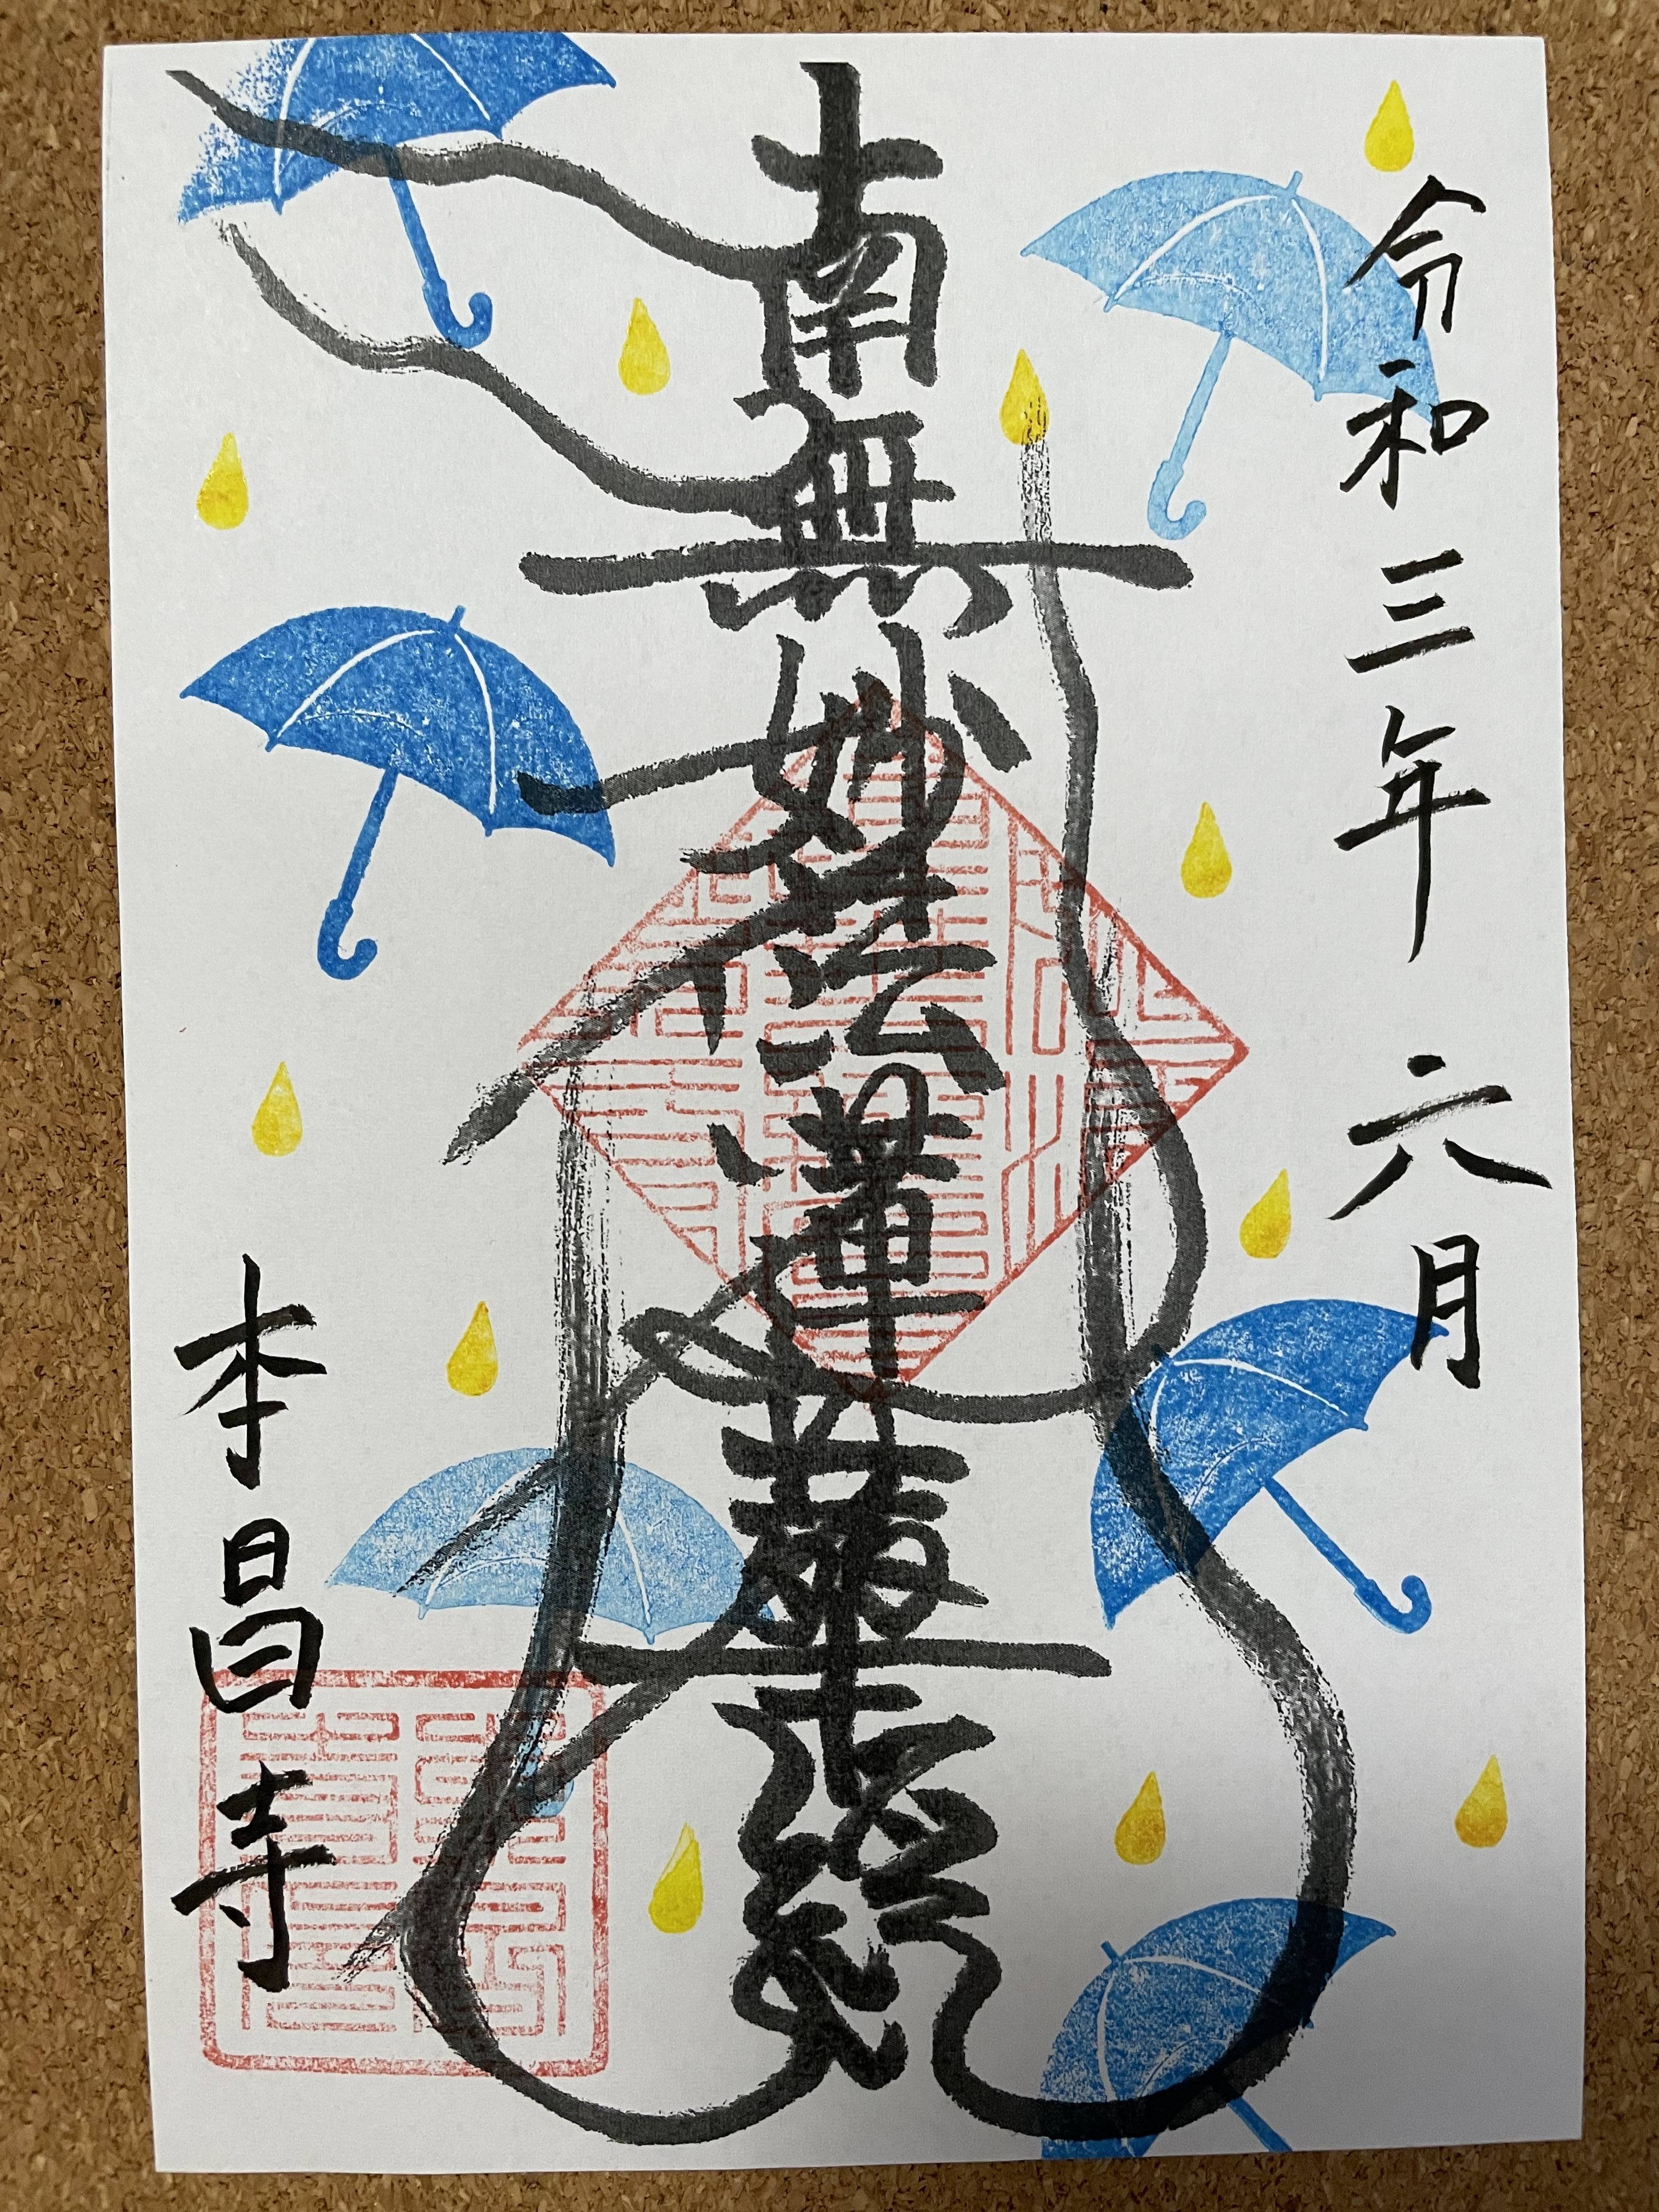 令和三年六月
南無妙法蓮華経
本昌寺